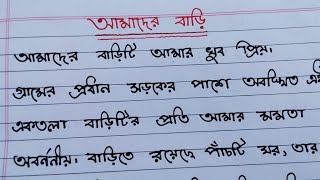 আমাদের বাড়ি
আমাদের বাড়িটি আমার খুব প্রিয়.
গ্রামের প্রধান সড়কের পাশে অবস্থিত এই
একতলা বাড়িটির প্রতি আমার মমতা
অবর্ননীয়. বাড়িতে রয়েছে পাঁচটি ঘর, তার